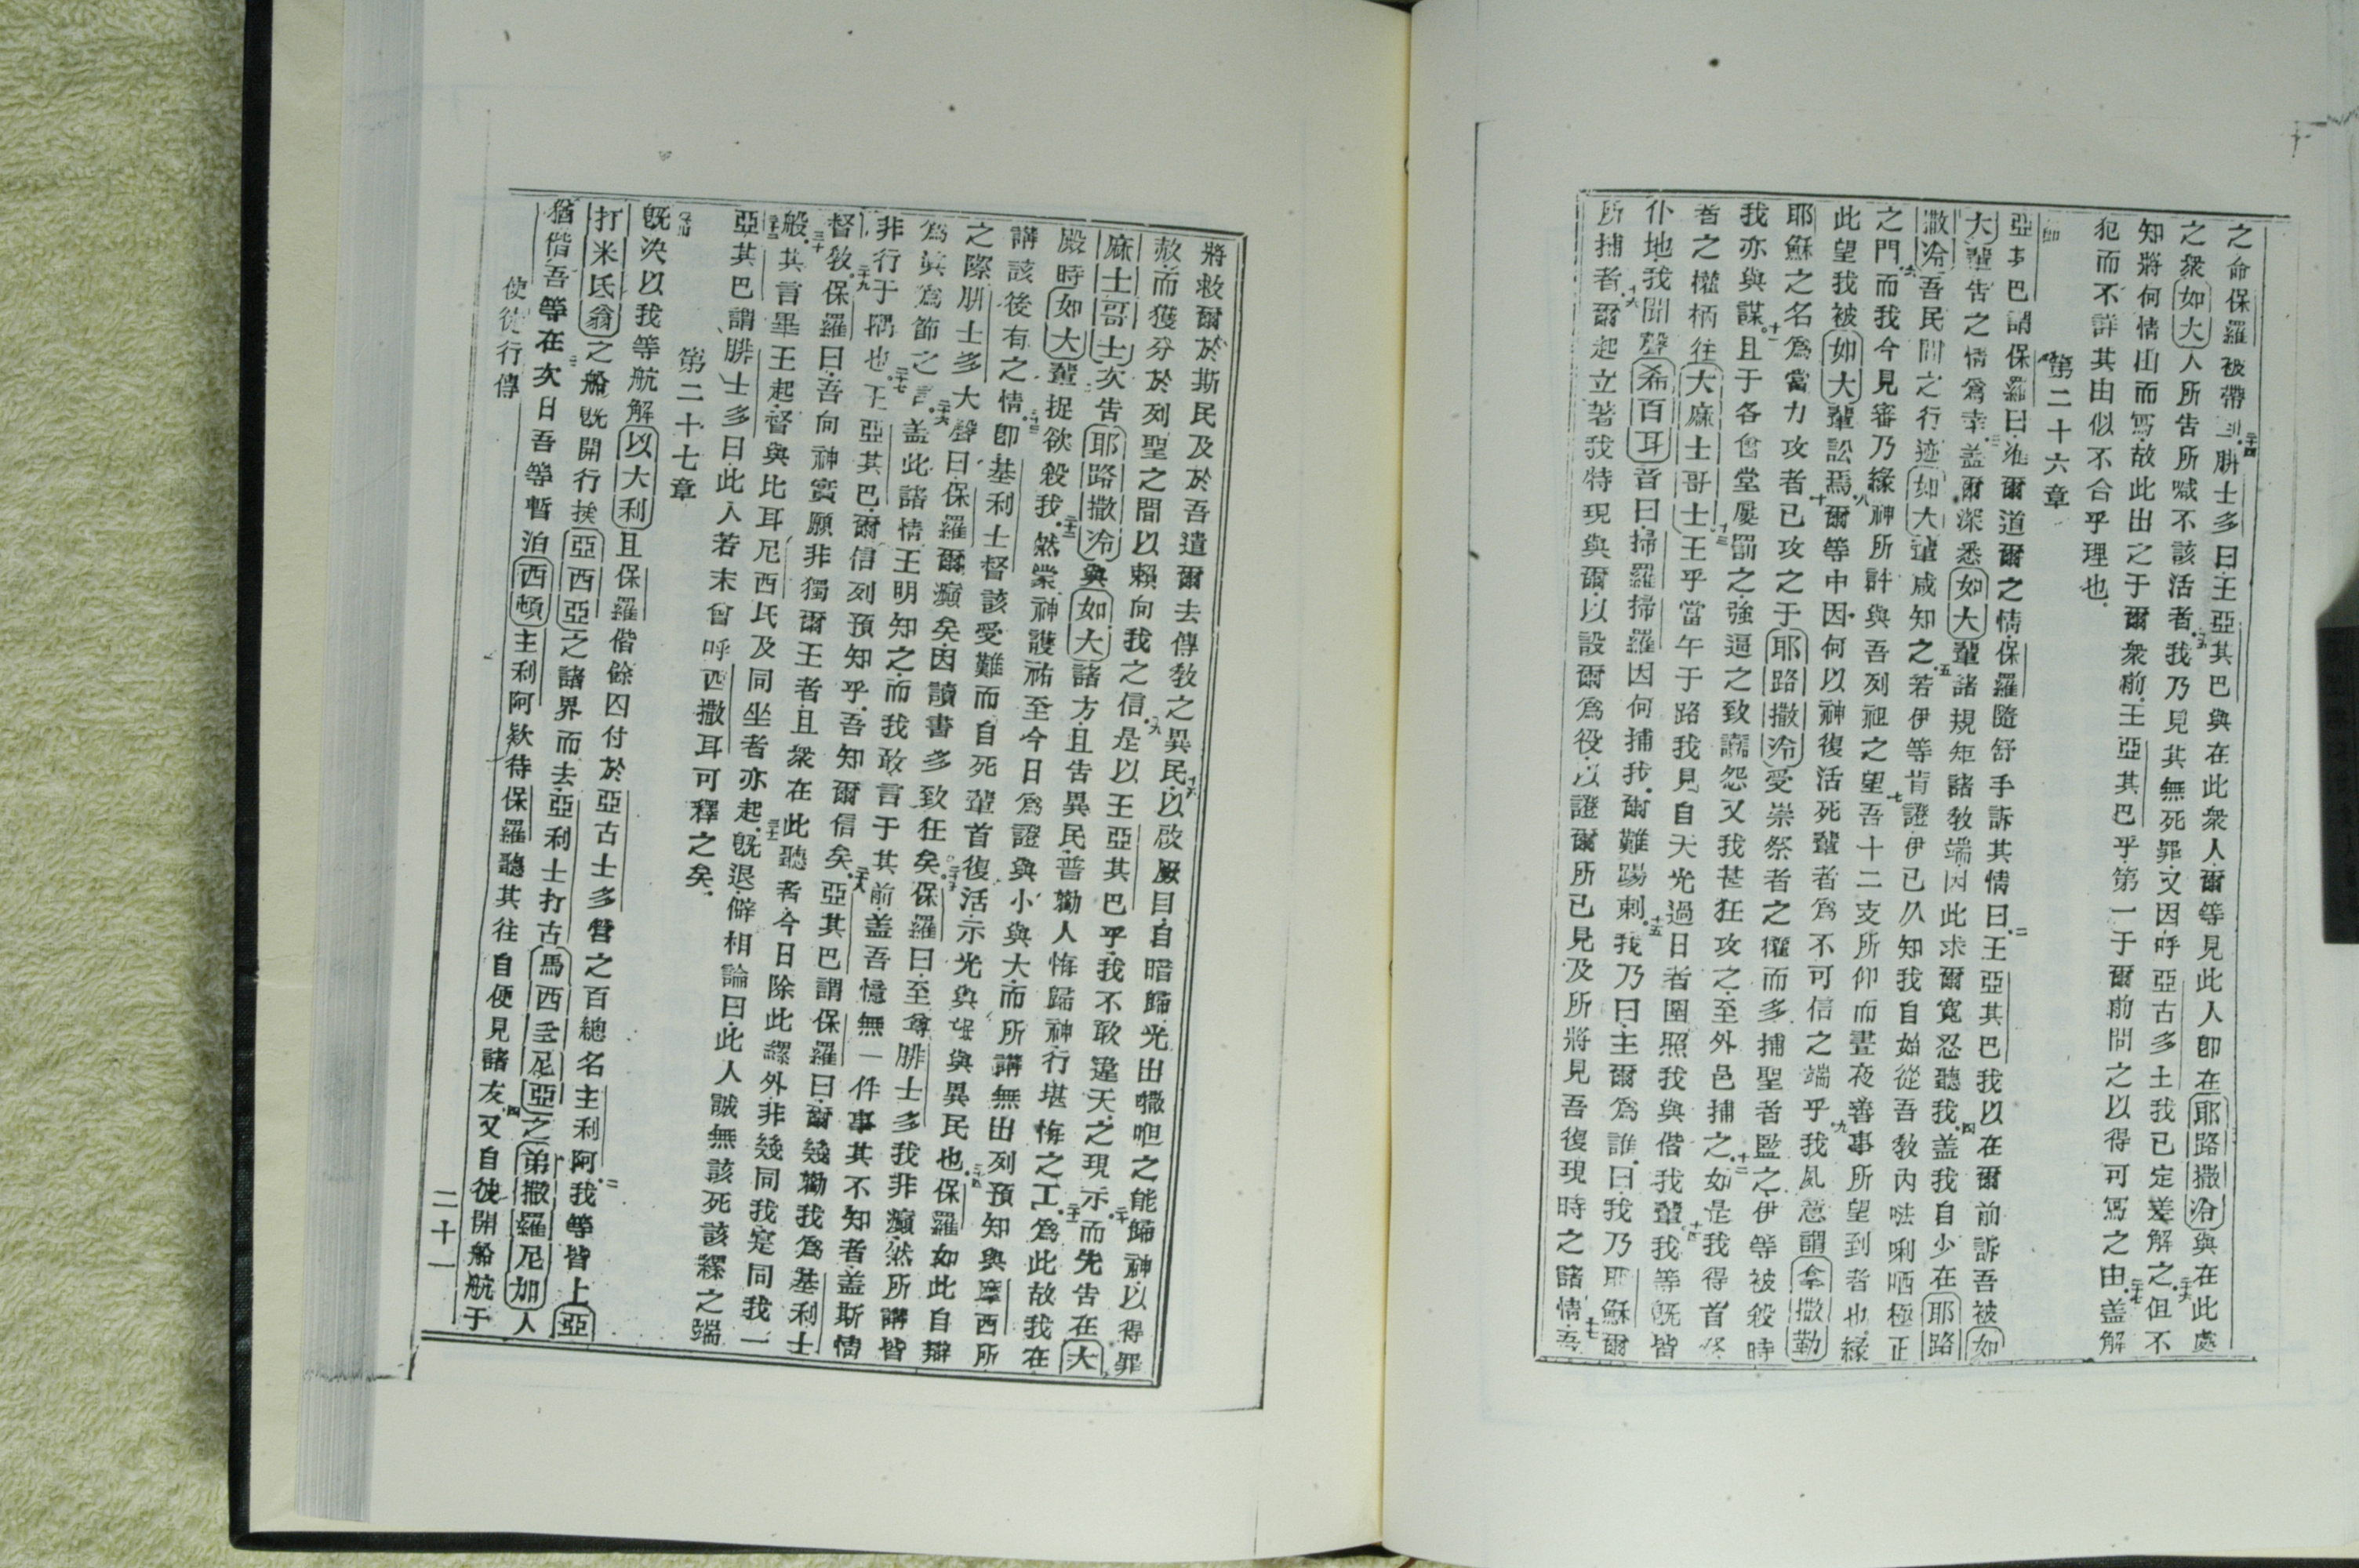 之命保羅被帶至腓士多曰王亞其巴與在此衆人爾等見此人即在耶路撒冷與在此處
之衆如大人所告所喊不該活者我乃見其無死罪又因呼亞古多士我已定差解之但不
知將何情由而寫故此出之于爾衆前王亞其巴乎第一于爾前問之以得可寫之由蓋解
犯而不詳其由似不合乎理也
第二十六章
亞其巴謂保羅曰准爾道爾之情保羅隨舒手訴其情曰王亞其巴我以在爾前訴吾被如
大輩告之情爲幸蓋爾深悉如大輩諸規矩諸教端因此求爾寬忍聽我蓋我自少在耶路
撒冷吾民間之行迹如大輩咸知之若伊等肯證伊已从知我自始從吾教內𠵽唎哂極正
之門而我今見審乃緣神所許與吾列祖之望吾十二支所仰而晝夜善事所望到者也緣
此望我被如大輩訟焉爾等中因何以神復活死輩者爲不可信之端乎我夙意謂拿撒勒
耶穌之名爲當力攻者已攻之于耶路撒冷受崇祭者之權而多捕聖者監之伊等被殺時
我亦與謀且于各會堂屢罰之強逼之致讟怨又我甚狂攻之至外邑捕之如是我得首祭
者之權柄往大麻士哥士王乎當午于路我見自天光過日者圍照我與偕我輩我等既皆
仆地我聞聲希百耳音曰掃羅掃羅因何捕我爾難踢刺我乃曰主爾爲誰曰我乃耶穌爾
所捕者爾起立著我特現與爾以設爾爲役以證爾所已見及所將見吾復現時之諸情吾
將救爾於斯民及於吾遣爾去傳教之異民以啟厥目自暗歸光出㘔呾之能歸神以得罪
赦而獲分於列聖之間以賴向我之信是以王亞其巴乎我不敢違天之現示而先告在大
麻士哥士次告耶路撒冷與如大諸方且告異民普勸人悔歸神行堪悔之工爲此故我在
殿時如大輩捉欲殺我然蒙神護祐至今日爲證與小與大而所講無出列預知與摩西所
講該後有之情即基利士督該受難而自死輩首復活示光與氓與異民也保羅如此自辯
之際腓士多大聲曰保羅爾癲矣因讀書多致狂矣保羅曰至尊腓士多我非癲然所講皆
爲眞爲節之言蓋此諸情王明知之而我敢言于其前蓋吾憶無一件事其不知者蓋斯情
非行于隅也王亞其巴爾信列預知乎吾知爾信矣亞其巴謂保羅曰爾幾勸我爲基利士
督教保羅曰吾向神實願非獨爾王者且衆在此聽者今日除此縲外非幾同我寔同我一
般其言畢王起督與比耳尼西氏及同坐者亦起既退僻相論曰此人誠無該死該縲之端
亞其巴謂腓士多曰此人若未曾呼西撒耳可釋之矣
第二十七章
既決以我等航解以大利且保羅偕餘囚付於亞古士多營之百總名主利阿我等皆上亞
打米氐翁之船既開行挨亞西亞之諸界而去亞利士打古馬西多尼亞之弟撒羅尼加人
猶偕吾等在次日吾等暫泊西頓主利阿欵待保羅聽其往自便見諸友又自彼開船航于
使徒行傳
二十一